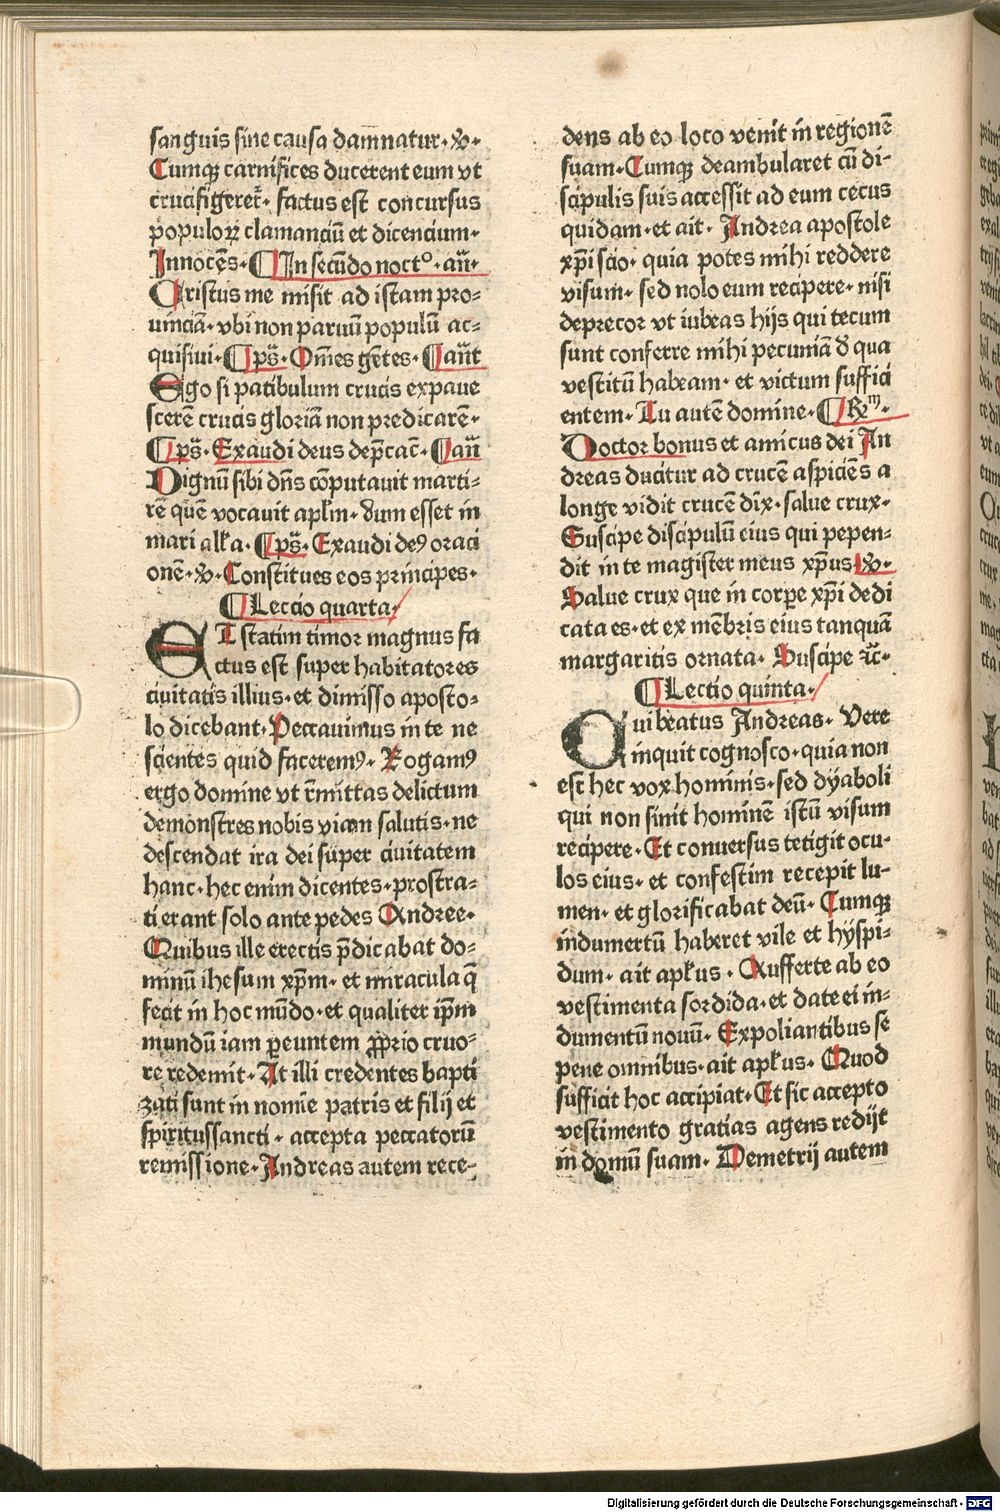 sanguis sine causa damnatur. V̷.
Cumqꝫ carnifices ducerent eum vt
crucifigeret̄. factus est concursus
populoꝝ clamanciū et dicencium.
Innocēs. ¶ In secūdo noct°. an̄.
Cristus me misit ad istam pro-
uinciā. vbi non paruū populū ac-
quisiui. ¶ ps̄. Om̄es gētes. ¶ an̄t
Ego si patibulum crucis expaue
scerem crucis gloriā non predicarē.
¶ ps̄. Exaudi deus dep̄cac̄. ¶ an̄
Dignū sibi dn̄s cōputauit marti-
rē quē vocauit apl̄m. dum esset in
mari all̄a. ¶ ps̄. Exaudi deꝰ oraci
onē. V̷. Constitues eos principes.
¶ Leccio quarta.
ET statim timor magnus fa
ctus est super habitatores
ciuitatis illius. et dimisso aposto-
lo dicebant. Peccauimus in te ne
scientes quid faceremꝰ. Rogamꝰ
ergo domine vt r̄mittas delictum
demonstres nobis viam salutis. ne
descendat ira dei super ciuitatem
hanc. hec enim dicentes. prostra-
ti erant solo ante pedes Andree.
Quibus ille erectis p̄dicabat do-
minū ihesum xp̄m. et miracula q̄
fecit in hoc mūdo. et qualiter ip̄m
mundū iam ꝑeuntem ꝓprio cruo-
re redemit. At illi credentes bapti
zati sunt in nomīe patris et filij et
spiritussancti. accepta peccatorū
remissione. Andreas autem rece-
dens ab eo loco venit in regionē
suam. Cumqꝫ deambularet cū di-
scipulis suis accessit ad eum cecus
quidam. et ait. Andrea apostole
xp̄i scio. quia potes mihi reddere
visum. sed nolo eum recipere. nisi
deprecor vt iubeas hijs qui tecum
sunt conferre mihi pecuniā d̄ qua
vestitū habeam. et victum suffici
entem. Tu autē domine. ¶ R̷m.
Doctor bonus et amicus dei An
dreas ducitur ad crucē aspiciēs a
longe vidit crucē dix̄. salue crux.
Suscipe discipulū eius qui pepen-
dit in te magister meus xp̄us. V̷.
Salue crux que in corpe xp̄i dedi
cata es. et ex mēbris eius tanquā
margaritis ornata. Suscipe ꝛc̄.
¶ Lectio quinta.
Qui beatus Andreas. Vere
inquit cognosco. quia non
est hec vox hominis. sed dyaboli
qui non sinit hominē istū visum
recipere. Et conuersus tetigit ocu-
los eius. et confestim recepit lu-
men. et glorificabat deū. Cumqꝫ
indumertū haberet vile et hyspi-
dum. ait apl̄us. Aufferte ab eo
vestimenta sordida. et date ei in-
dumentū nouū. Expoliantibus se
pene omnibus. ait apl̄us. Quod
sufficit hoc accipiat. Et sic accepto
vestimento gratias agens redijt
in domū suam. Demetrij autem
Digitalisierung gefördert durch die Deutsche Forschungsgemeinschaft - DFG